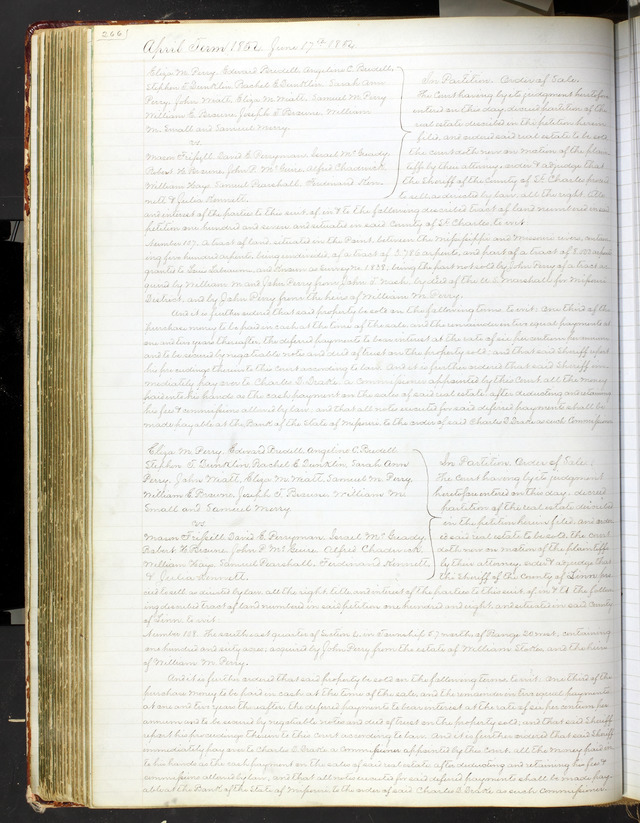 266
April Term 1862 June 17th 1862
Eliza M. Perry, Edward Bredell, Angeline C. Bredell,
Stephen T. Dunklin, Rachel E. Dunklin, Sarah Ann
Perry, John Matt, Eliza M. Matt, Samuel M. Perry
William E. Browne, Joseph T. Browne, William
M. Small and Samuel Merry.
vs
Mason Frissell, David E. Perryman, Israel McGready,
Robert H. Browne, John P. McGuire, Alfred Chadwick,
William Hays, Samuel Pearshall, Ferdinand Ken-
nett & Julia Kennett.
In Partition. Order of Sale.
The Court having by its judgment heretofore
entered on this day decreed partition of the
real estate described in the petition herein
filed, and ordered said real estate to be sold
the court doth now on motion of the plain-
tiffs by their attorney, order & adjudge that
the Sheriff of the County of St. Charles proceed
to sell as directed by law all the right, title
and interest of the parties to this suit of in & to the following described tract of land numbered in said
petition one hundred and seven and situated in said County of St. Charles, to wit:
Number 107. A tract of land, situated in the Point, between the Mississippi and Missouri rivers, contain-
ing four hundred arpents, being undivided, of a tract of 2,786 arpents, and part of a tract of
granted to Louis Labeaume, and known as Survey No 1838; being the part not sold by John Perry of a tract ac-
quired by William M. and John Perry from John E. Nash, by deed of the U.S. Marshall for Missouri
District, and by John Perry from the heirs of William M. Perry.
And it is further ordered that said property be sold on the following terms to wit: One third of the
purchase money to be paid in cash at the time of the sale, and the remainder in two equal payments at
one and two years thereafter, the deferred payments to bear interest at the rate of six per centum per annum
and to be secured by negotiable notes and deed of trust on the property sold; and that said Sheriff report
his proceedings herein to this court according to law. And it is further ordered that said Sheriff im-
mediately pay over to Charles D. Drake, a commissioner appointed by this Court all the money
paid into his hands as the cash payment on the sales of said real estate after deducting and retaining
his fees & commissions allowed by law, and that all notes executed for said deferred payments shall be
made payable at the Bank of the State of Missouri to the order of said Charles D. Drake as such Commissioner.
Eliza M. Perry, Edward Bredell, Angeline C. Bredell
Stephen T. Dunklin, Rachel E. Dunklin, Sarah Ann
Perry, John Matt, Eliza M. Matt, Samuel M. Perry
William E. Browne, Joseph T. Browne, William M.
Small and Samuel Merry
vs
Mason Frissell, David E. Perryman, Israel McGready
Robert H. Browne, John P. McGuire, Alfred Chadwick,
William Hays, Samuel Pearshall, Ferdinand Kennett
& Julia Kennett.
In Partition. Order of Sale.
The Court having by its judgment
heretofore entered on this day, decreed
partition of the real estate described
in the petition herein filed, and order-
ed said real estate to be sold, the Court
doth now on motion of the plaintiffs
by their attorney, order & adjudge that
the Sheriff of the County of Linn pro-
ceed to sell as directed by law all the right, title and interest of the parties to this suit of, in & to the follow-
ing described tract of land numbered in said petition one hundred and eight, and situated in said County
of Linn to wit:
Number 108. The south east quarter of Section 6, in Township 57 north of Range 20 west, containing
one hundred and sixty acres; acquired by John Perry from the estate of William Stoker and the heirs
of William M. Perry.
And it is further ordered that said property be sold on the following terms to wit: One third of the
purchase money to be paid in cash at the time of the sale, and the remainder in two equal payments
at one and two years thereafter, the deferred payments to bear interest at the rate of six per centum per
annum and to be secured by negotiable notes and deed of trust on the property sold; and that said Sheriff
report his proceedings therein to this court according to law. And it is further ordered that said Sheriff
immediately pay over to Charles D. Drake a Commissioner appointed by this court all the money paid in-
to his hands as the cash payment on the sales of said real estate after deducting and retaining his fees &
commissions allowed by law, and that all notes executed for said deferred payments shall be made pay-
able at the Bank of the State of Missouri to the order of said Charles D. Drake as such Commissioner.